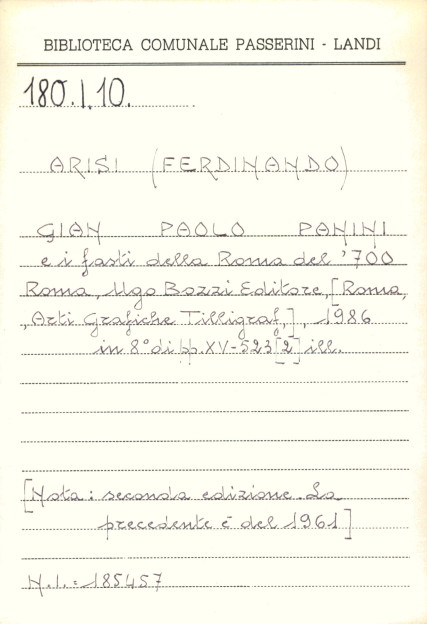 BIBLIOTECA COMUNALE PASSERINI - LANDI
180.I.10.
ARISI (FERDINANDO)
GIAN PAOLO PANINI
e i fasti della Roma del '700
Roma, Ugo Bozzi Editore, [Roma,
Arti Grafiche Tilligraf,], 1986
in 8° di pp. XV-523 [2] ill.
[Nota: seconda edizione. La
precedente è del 1961]
N.I.= 185457